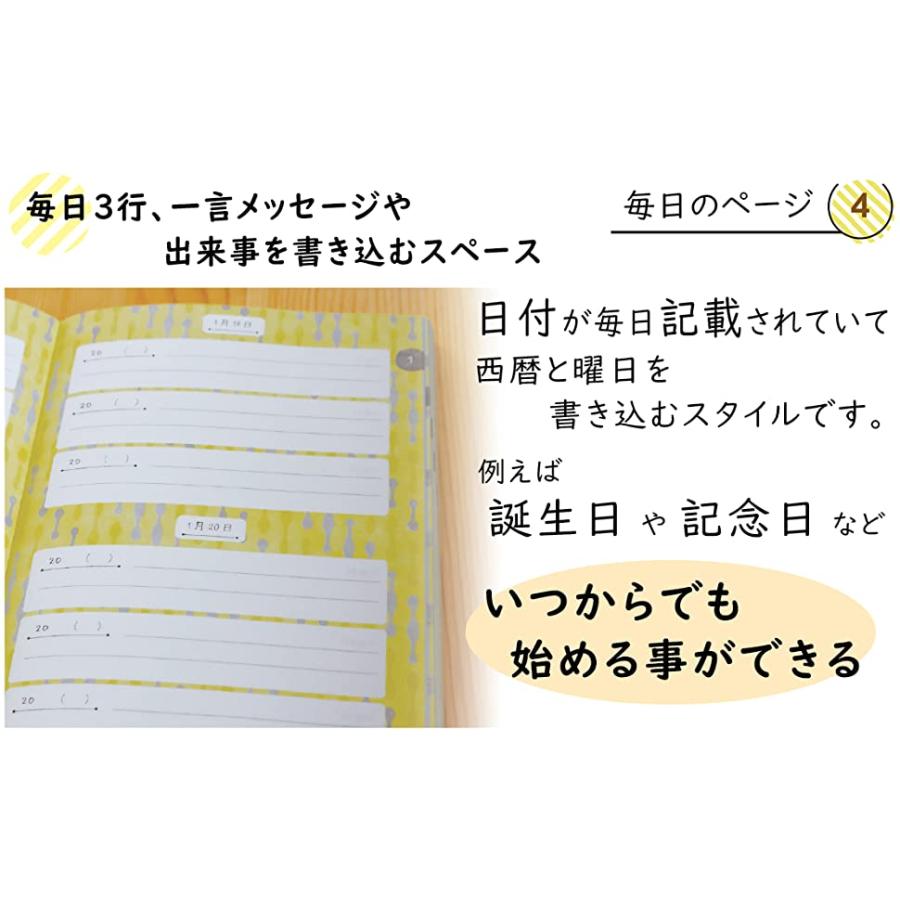 毎日3行、一言メッセージや
出来事を書き込むスペース
毎日のページ 4
日付が毎日記載されていて
西暦と曜日を
書き込むスタイルです。
例えば
誕生日 や 記念日 など
いつからでも
始める事ができる
1
20 ( )
20 ( )
20 ( )
1月20日
20 ( )
20 ( )
20 ( )